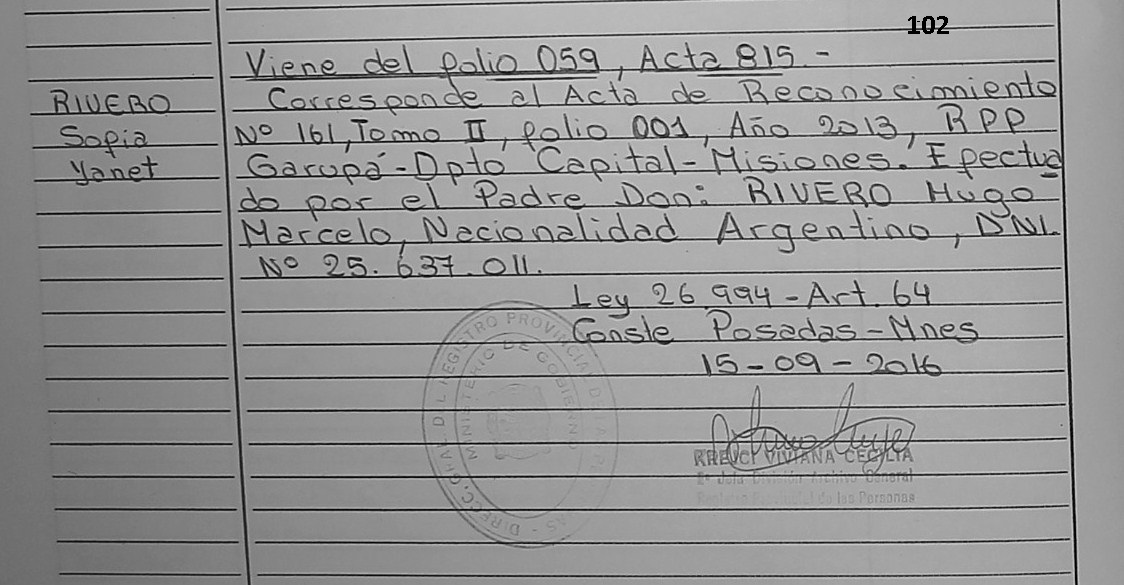 102
Viene del folio 059, Acta 815.-
RIVERO
Sofia
Yanet
Corresponde al Acta de Reconocimiento
Nº 161, Tomo II, folio 001, Año 2013, RPP
Garupá-Dpto Capital-Misiones. Efectua
do por el Padre Don: RIVERO Hugo
Marcelo, Nacionalidad Argentino, DNI.
Nº 25.637.011.
Ley 26.994-Art. 64
Conste Posadas-Mnes
15-09-2016
VIVIANA CECILIA
División Archivo General
de las Personas
DIRECC. GRAL DEL REGISTRO PROVINCIAL DE LAS
MINISTERIO DE GOBIERNO